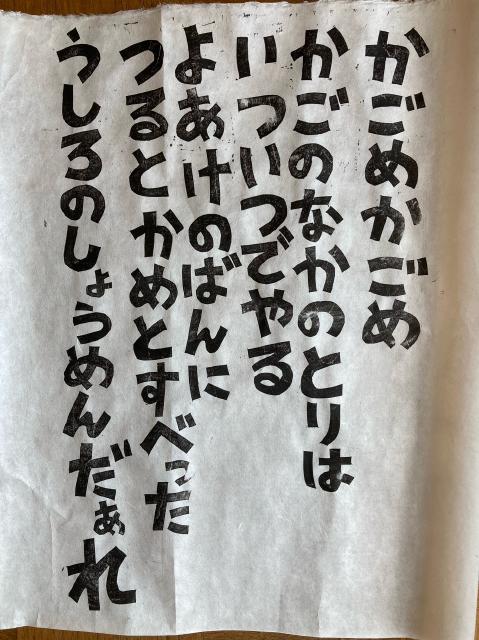 かごめかごめ
かごのなかのとりは
いついつでやる
よあけのばんに
つるとかめとすべった
うしろのしょうめんだぁれ